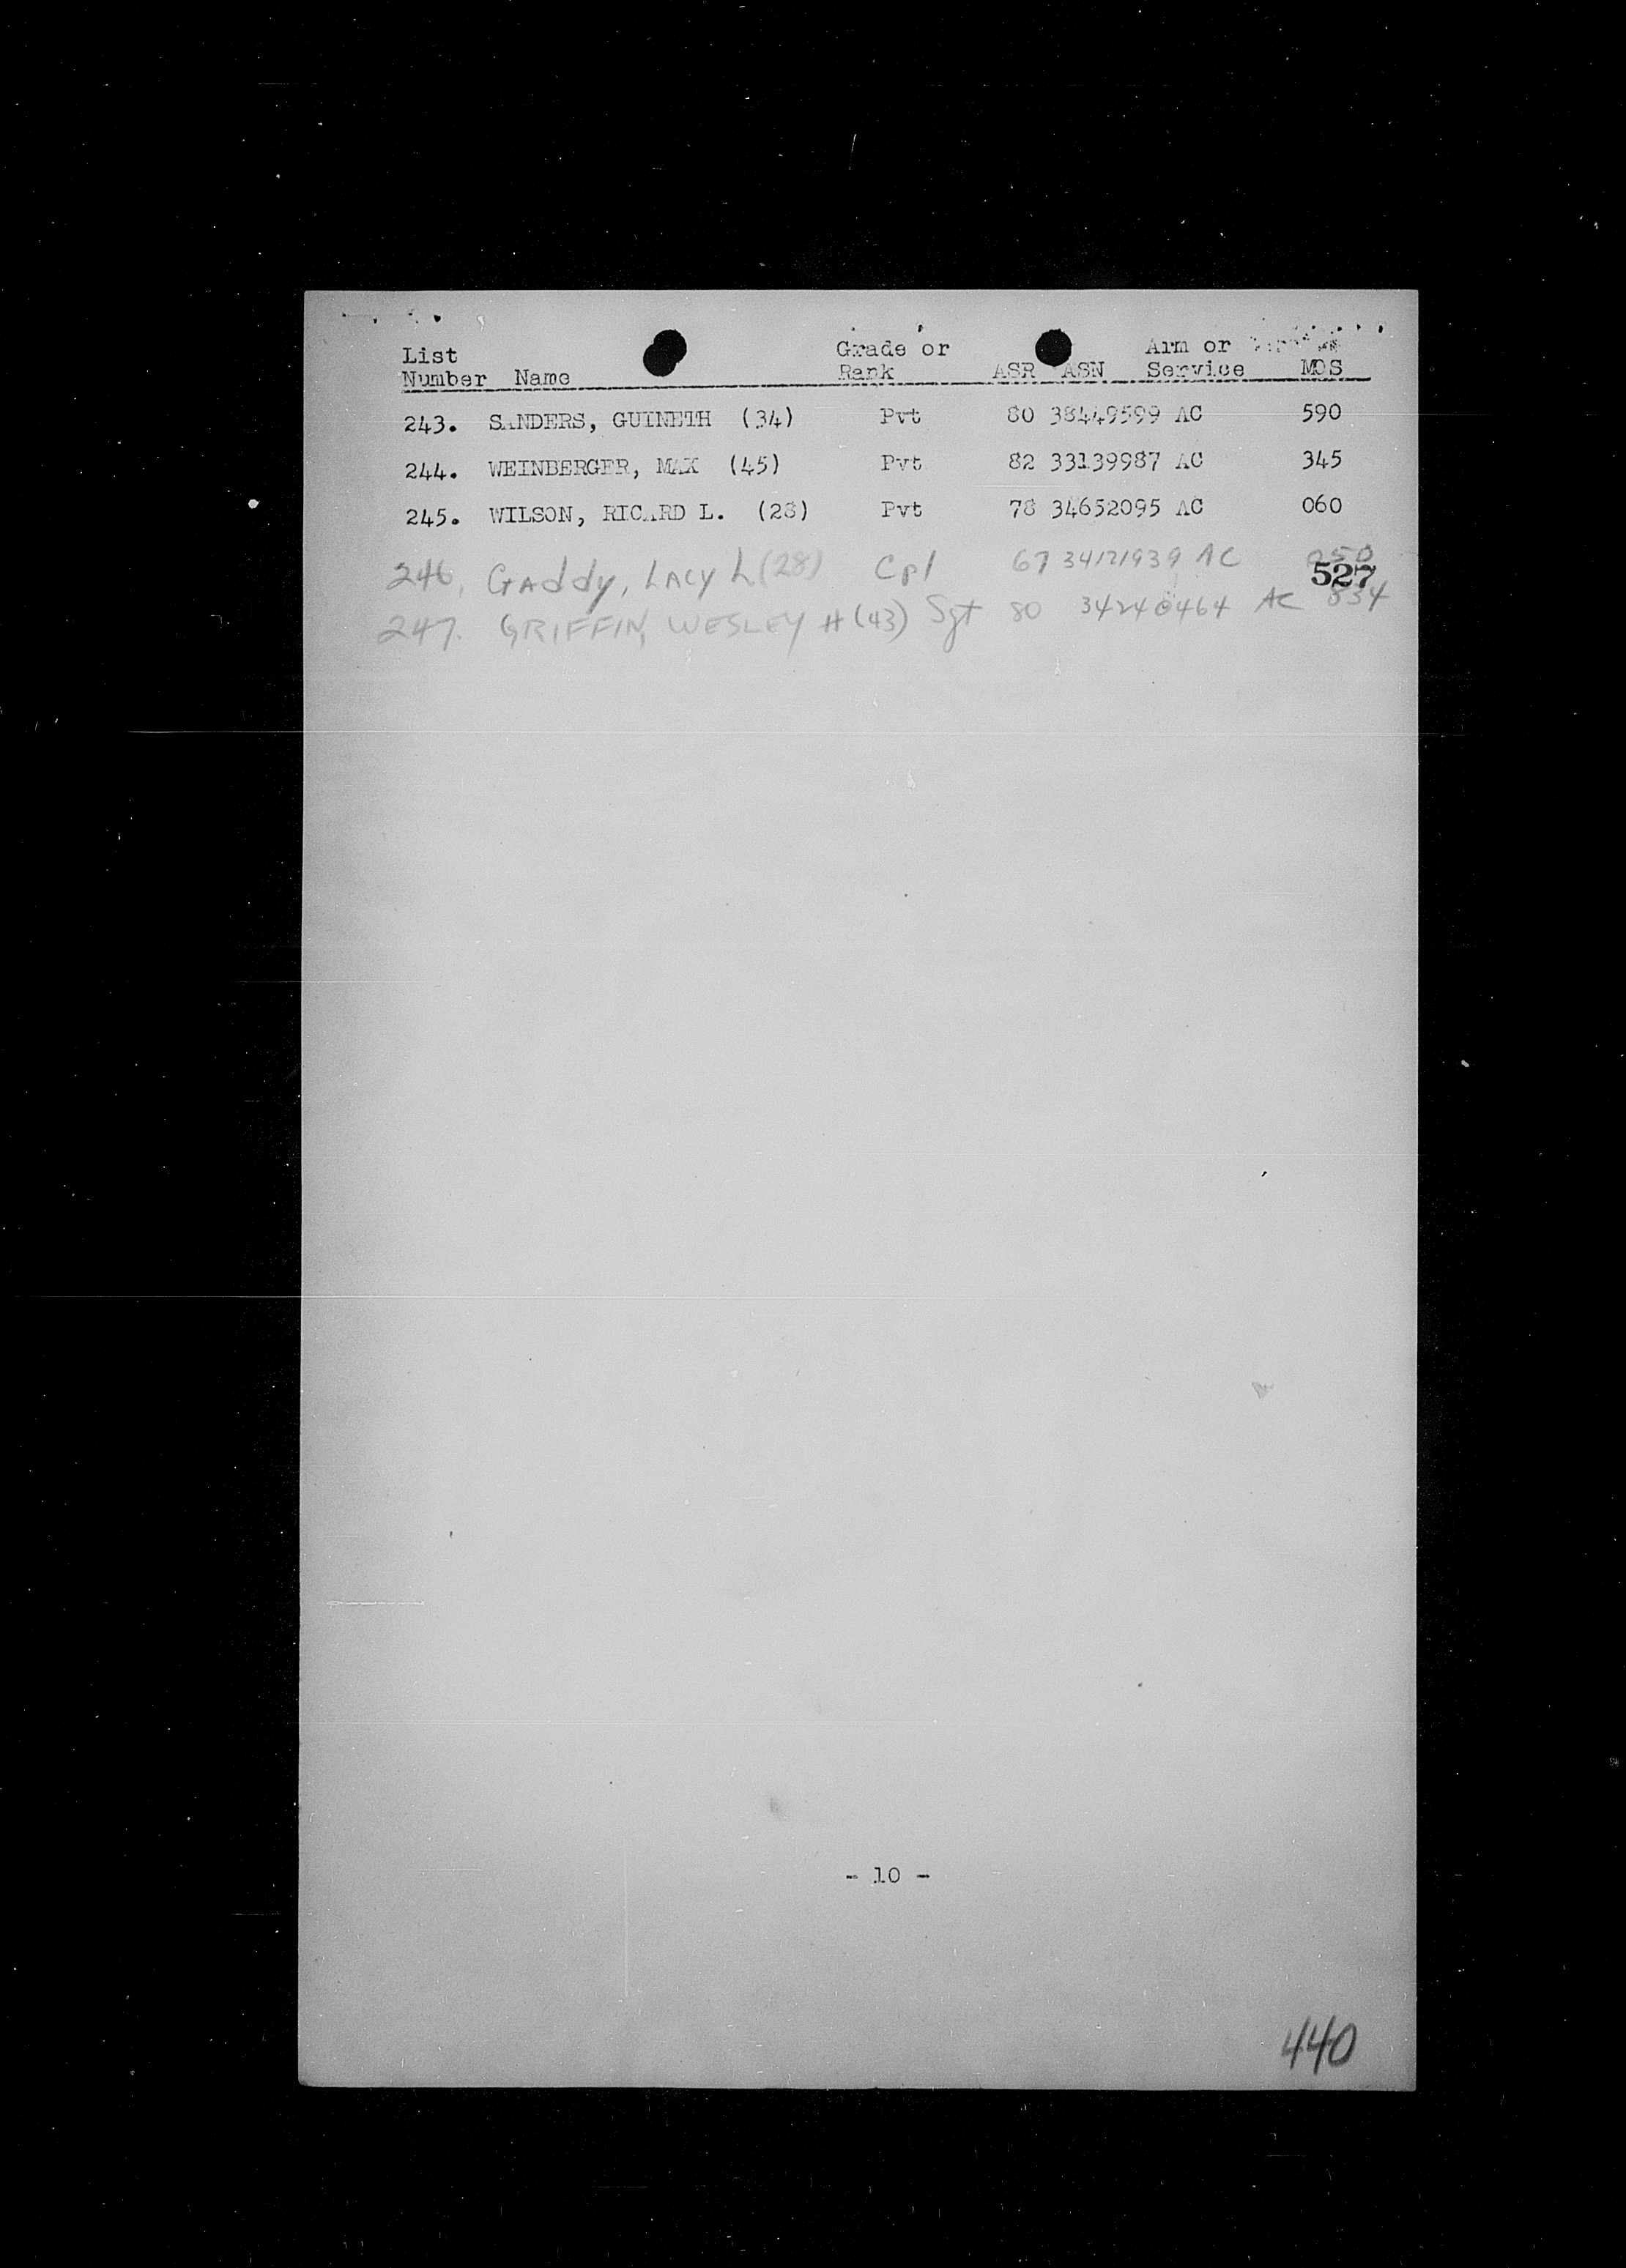 List Grade or Arm or
Number Name Rank ASR ASN Service MOS
243. SANDERS, GUINETH (34) Pvt 80 38449599 AC 590
244. WEINBERGER, MAX (45) Pvt 82 33139987 AC 345
245. WILSON, RICARD L. (28) Pvt 78 34652095 AC 060
246. Gaddy, LAcy L (28) Cpl 67 34121939 AC
527
247. GRIFFIN, WESLEY H (43) Sgt 80 34240464 AC 834
- 10 -
440